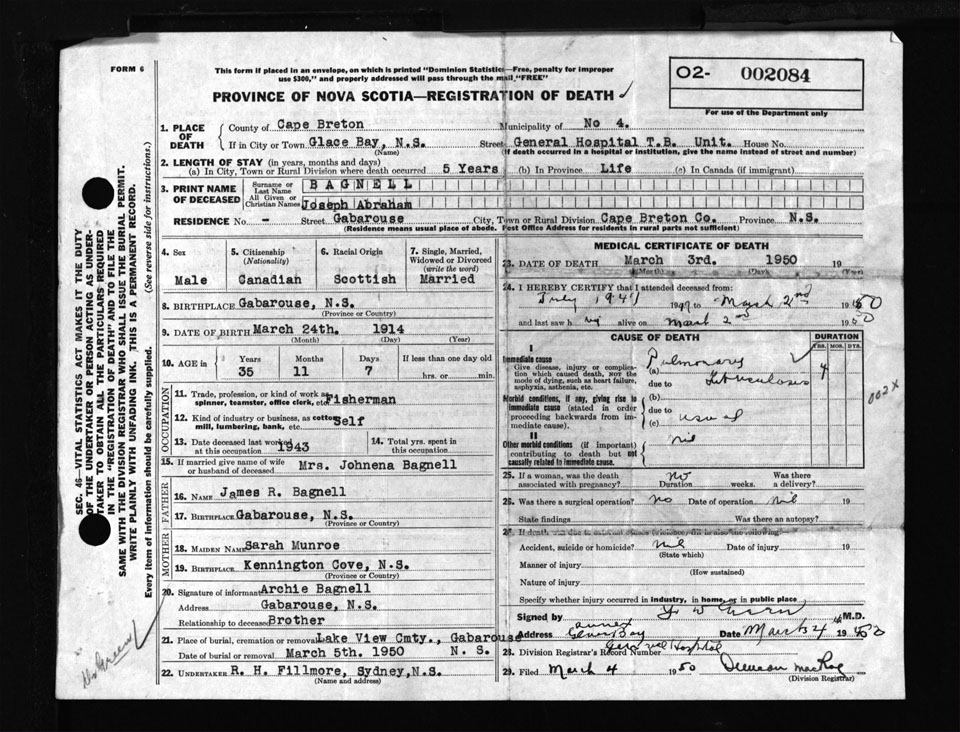 FORM 6
This form if placed in an envelope, on which is printed "Dominion Statistics—Free, penalty for improper
use $300," and properly addressed will pass through the mail "FREE"
PROVINCE OF NOVA SCOTIA—REGISTRATION OF DEATH
O2- 002084
For use of the Department only
SEC. 46—VITAL STATISTICS ACT MAKES IT THE DUTY
OF THE UNDERTAKER OR PERSON ACTING AS UNDER-
TAKER TO OBTAIN ALL THE PARTICULARS REQUIRED
IN THE "REGISTRATION OF DEATH" AND TO FILE THE
SAME WITH THE DIVISION REGISTRAR WHO SHALL ISSUE THE BURIAL PERMIT.
WRITE PLAINLY WITH UNFADING INK. THIS IS A PERMANENT RECORD.
Every item of information should be carefully supplied. (See reverse side for instructions.)
1. PLACE OF DEATH
County of Cape Breton Municipality of No 4.
If in City or Town Glace Bay, N.S. Street General Hospital T.B. Unit. House No.
(Name) (If death occurred in a hospital or institution, give the name instead of street and number)
2. LENGTH OF STAY (in years, months and days)
(a) In City, Town or Rural Division where death occurred 5 Years (b) In Province Life (c) In Canada (if immigrant)
3. PRINT NAME OF DECEASED
Surname or Last Name BAGNELL
All Given or Christian Names Joseph Abraham
RESIDENCE No. - Street Gabarouse City, Town or Rural Division Cape Breton Co. Province N.S.
(Residence means usual place of abode. Post Office Address for residents in rural parts not sufficient)
4. Sex
Male
5. Citizenship
(Nationality)
Canadian
6. Racial Origin
Scottish
7. Single, Married,
Widowed or Divorced
(write the word)
Married
8. BIRTHPLACE Gabarouse, N.S.
(Province or Country)
9. DATE OF BIRTH March 24th. 1914
(Month) (Day) (Year)
10. AGE in
Years Months Days If less than one day old
35 11 7 hrs. or min.
OCCUPATION
11. Trade, profession, or kind of work as
spinner, teamster, office clerk, etc. Fisherman
12. Kind of industry or business, as cotton
mill, lumbering, bank, etc. Self
13. Date deceased last worked
at this occupation 1943
14. Total yrs. spent in
this occupation
15. If married give name of wife
or husband of deceased Mrs. Johnena Bagnell
FATHER
16. NAME James R. Bagnell
17. BIRTHPLACE Gabarouse, N.S.
(Province or Country)
MOTHER
18. MAIDEN NAME Sarah Munroe
19. BIRTHPLACE Kennington Cove, N.S.
(Province or Country)
20. Signature of informant Archie Bagnell
Address Gabarouse, N.S.
Relationship to deceased Brother
21. Place of burial, cremation or removal Lake View Cmty., Gabarouse
Date of burial or removal March 5th. 1950 N. S.
22. UNDERTAKER R. H. Fillmore, Sydney, N.S.
(Name and address)
MEDICAL CERTIFICATE OF DEATH
23. DATE OF DEATH March 3rd. 1950 19
(Month) (Day) (Year)
24. I HEREBY CERTIFY that I attended deceased from:
July 1947 1947 to March 2nd 1950
and last saw him alive on March 2nd 1950
CAUSE OF DEATH DURATION
YRS. MOS. DYS.
I
Immediate cause
Give disease, injury or complica-
tion which caused death, NOT the
mode of dying, such as heart failure,
asphyxia, asthenia, etc.
(a) Pulmonary
due to Tuberculosis 4
Morbid conditions, if any, giving rise to
immediate cause (stated in order
proceeding backwards from im-
mediate cause).
(b)
due to
(c) usual
II
Other morbid conditions (if important)
contributing to death but not
causally related to immediate cause.
nil
002 X
25. If a woman, was the death
associated with pregnancy? No Duration weeks. Was there
a delivery?
26. Was there a surgical operation? no Date of operation nil 19
State findings Was there an autopsy?
27. If death was due to external causes (violence) fill in also the following:
Accident, suicide or homicide? nil Date of injury 19
(State which)
Manner of injury
(How sustained)
Nature of injury
Specify whether injury occurred in industry, in home, or in public place
Signed by M.D.
Address Glace Bay Date March 4 1950
General Hospital
28. Division Registrar's Record Number
29. Filed March 4 1950 Duncan MacRae
(Division Registrar)